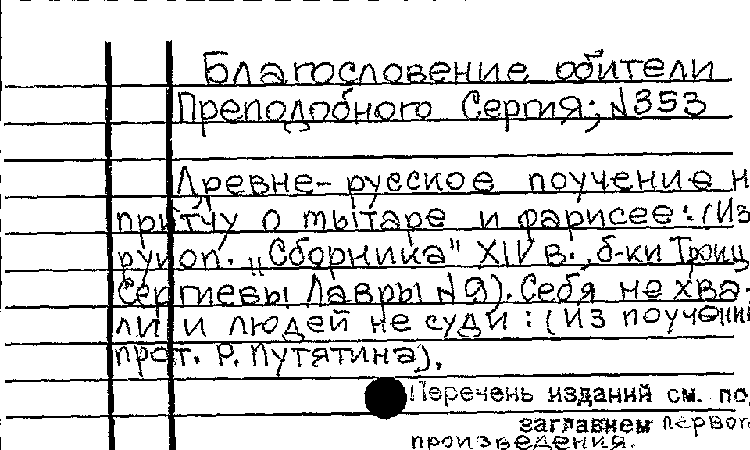 Благословение обители
Преподобного Сергия; №353
Древне-русское поучение н
притчу о мытаре и фарисее: (Из
рукоп. „Сборника" XIV в., б-ки Троиц
Сергиевы Лавры №9). Себя не хва-
ли и людей не суди: (из поучени
прот. Р. Путятина).
Перечень изданий см. под
заглавием первого
произведения.